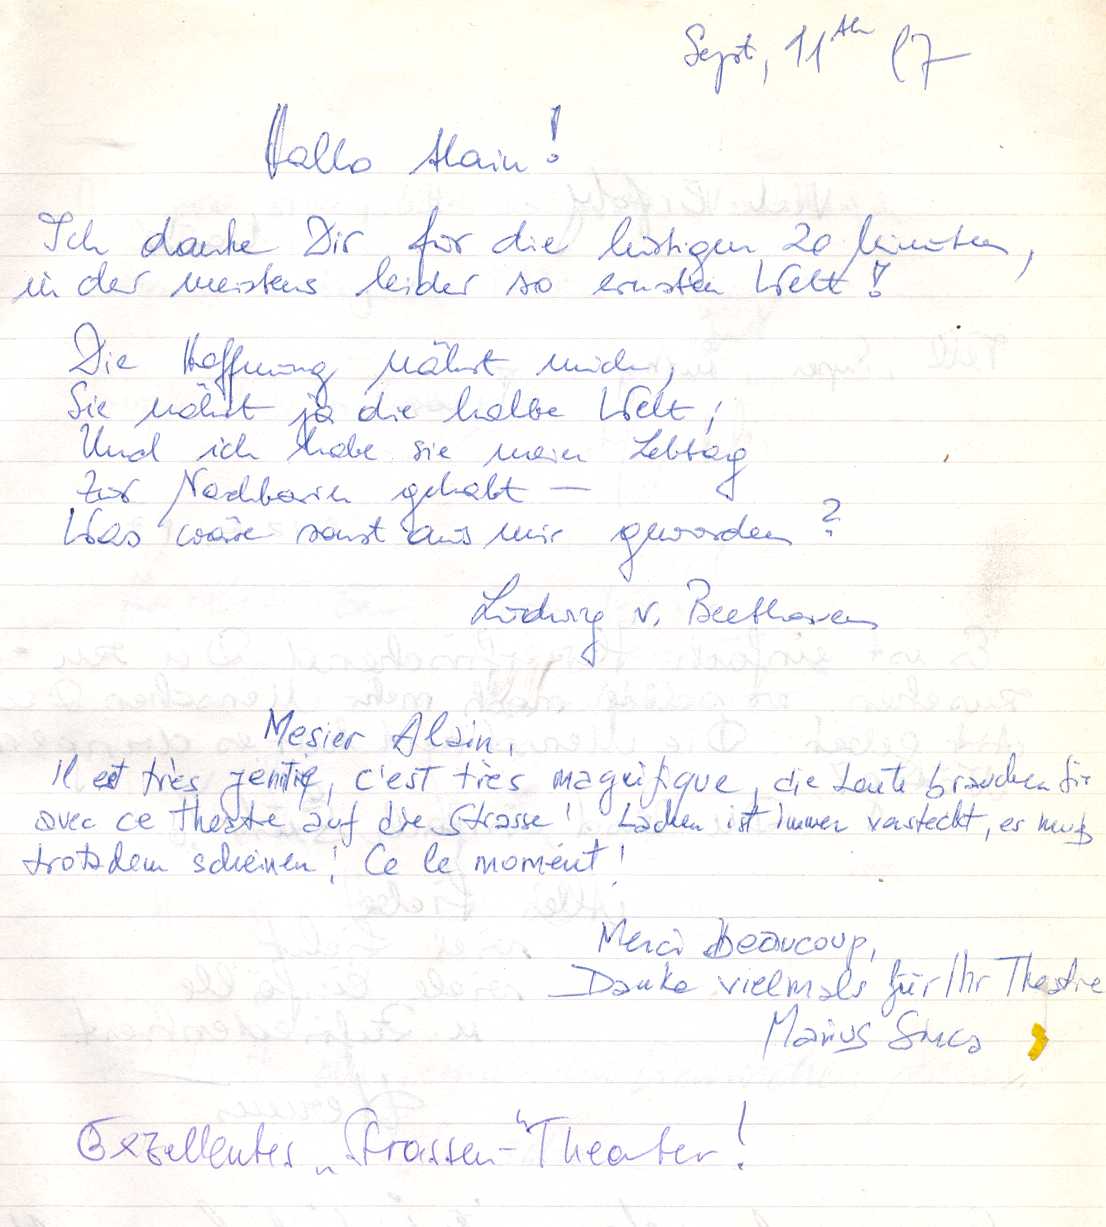 Sept, 11th 87
Hallo Alain!
Ich danke Dir für die lustigen 20 Minuten,
in der meistens leider so ernsten Welt!
Die Hoffnung nährt mich,
Sie nährt ja die halbe Welt,
Und ich habe sie mein Lebtag
Zur Nachbarin gehabt —
Was wäre sonst aus mir geworden?
Ludwig v. Beethoven
Mesier Alain,
Il est très jentile, c'est très magnifique, die Leute brauchen für
avec ce theatre auf die Strasse! Lachen ist immer versteckt, es muß
trotzdem scheinen! Ce le moment!
Merci Beaucoup,
Danke vielmals für Ihr Theatre
Marius
Exzellentes „Strassen-"Theater!